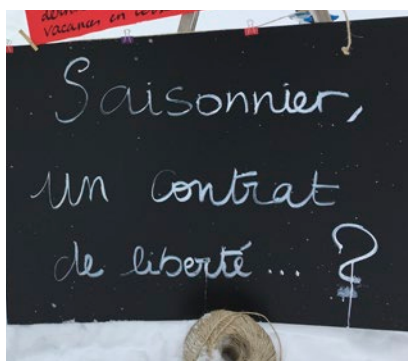 vacances en
Saisonnier,
un contrat
de liberté... ?